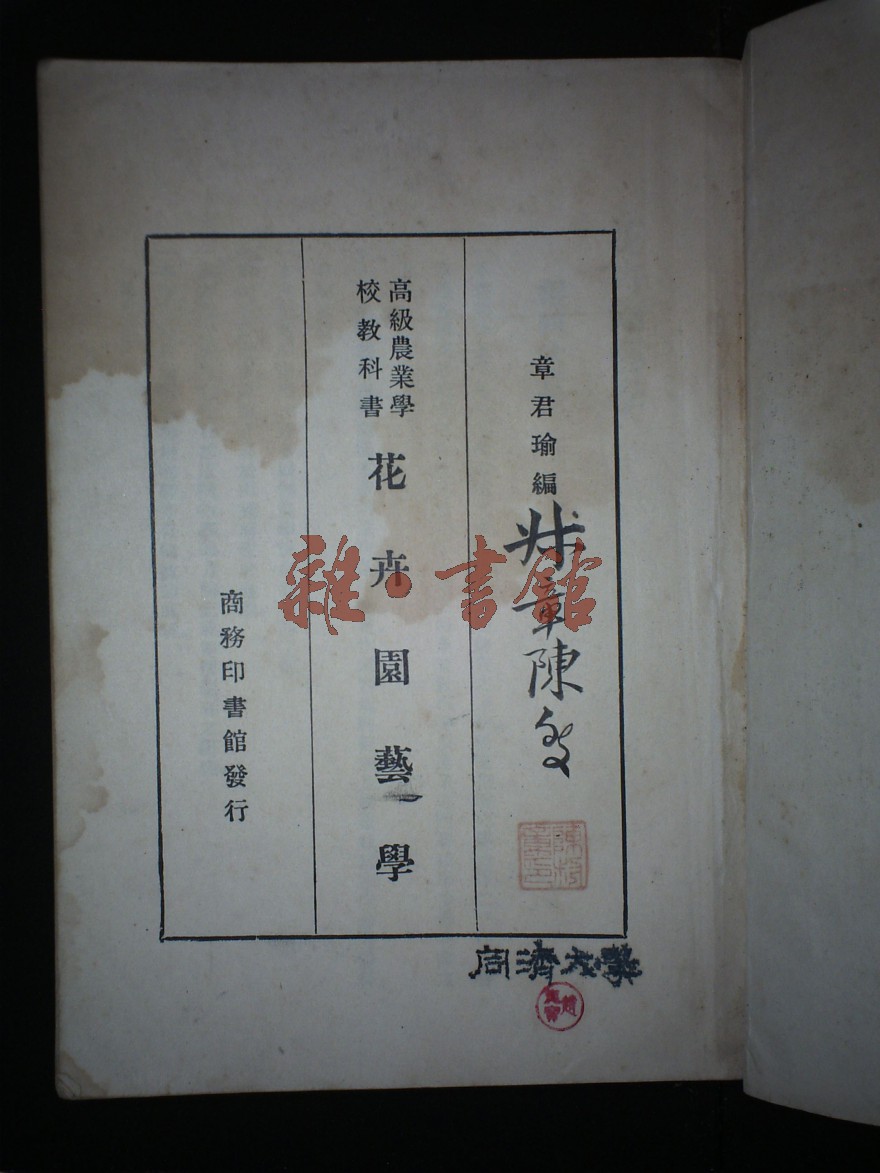 章君瑜編
章陳
高級農業學
校教科書
花卉園藝學
商務印書館發行
雜·書館
同濟大學